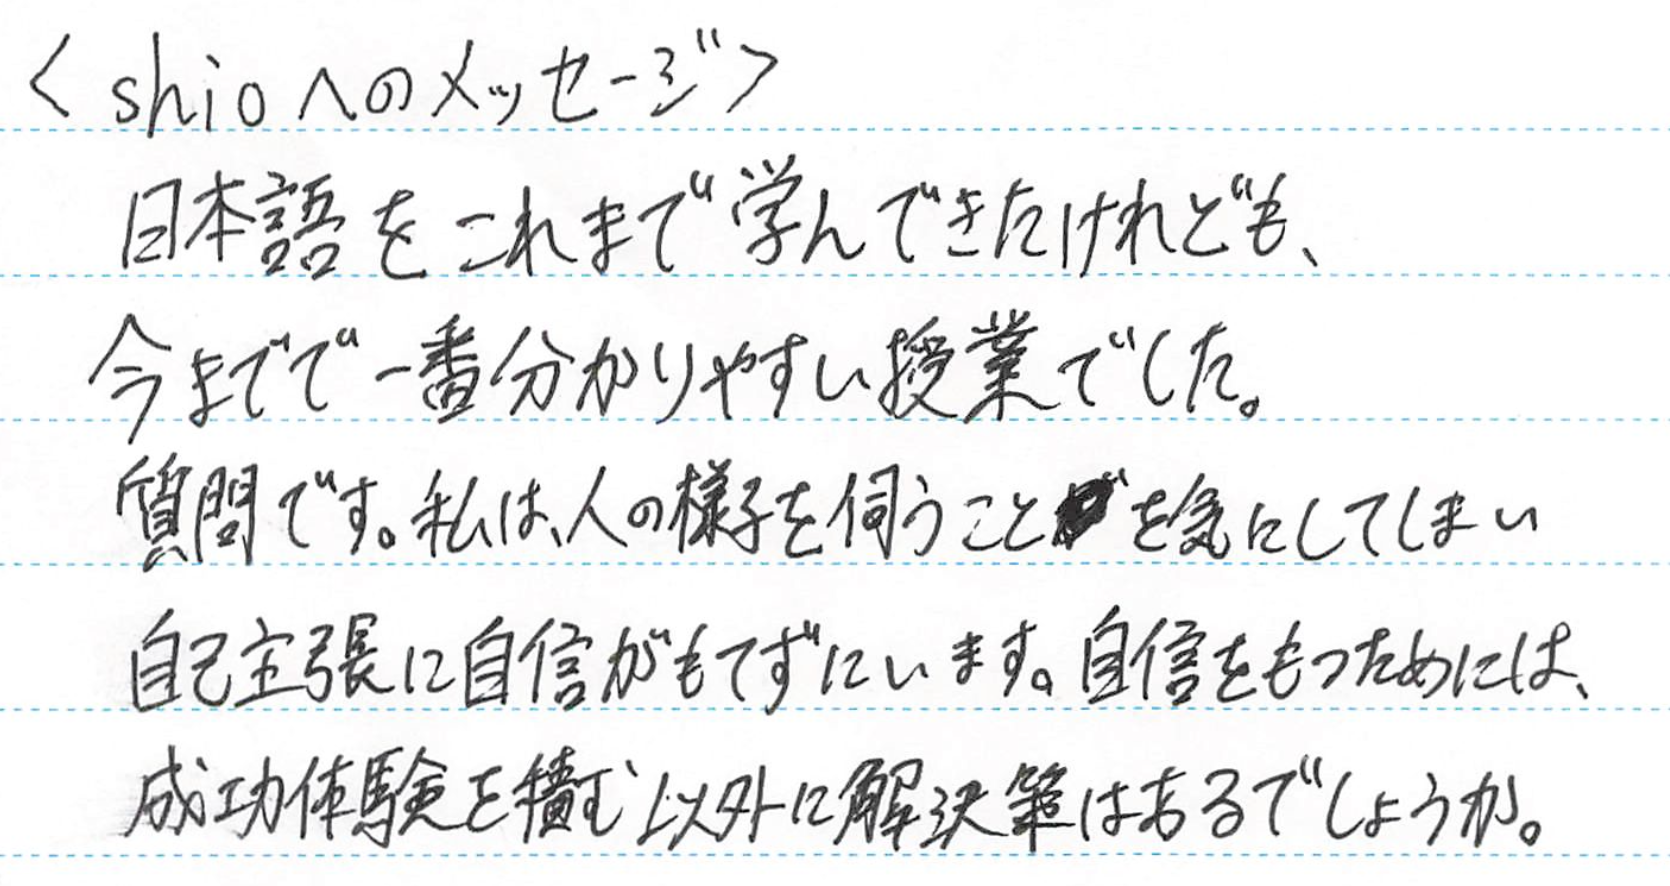 <shioへのメッセージ>
日本語をこれまで学んできたけれども、
今までで一番分かりやすい授業でした。
質問です。私は、人の様子を伺うことを気にしてしまい
自己主張に自信がもてずにいます。自信をもつためには、
成功体験を積む以外に解決策はあるでしょうか。